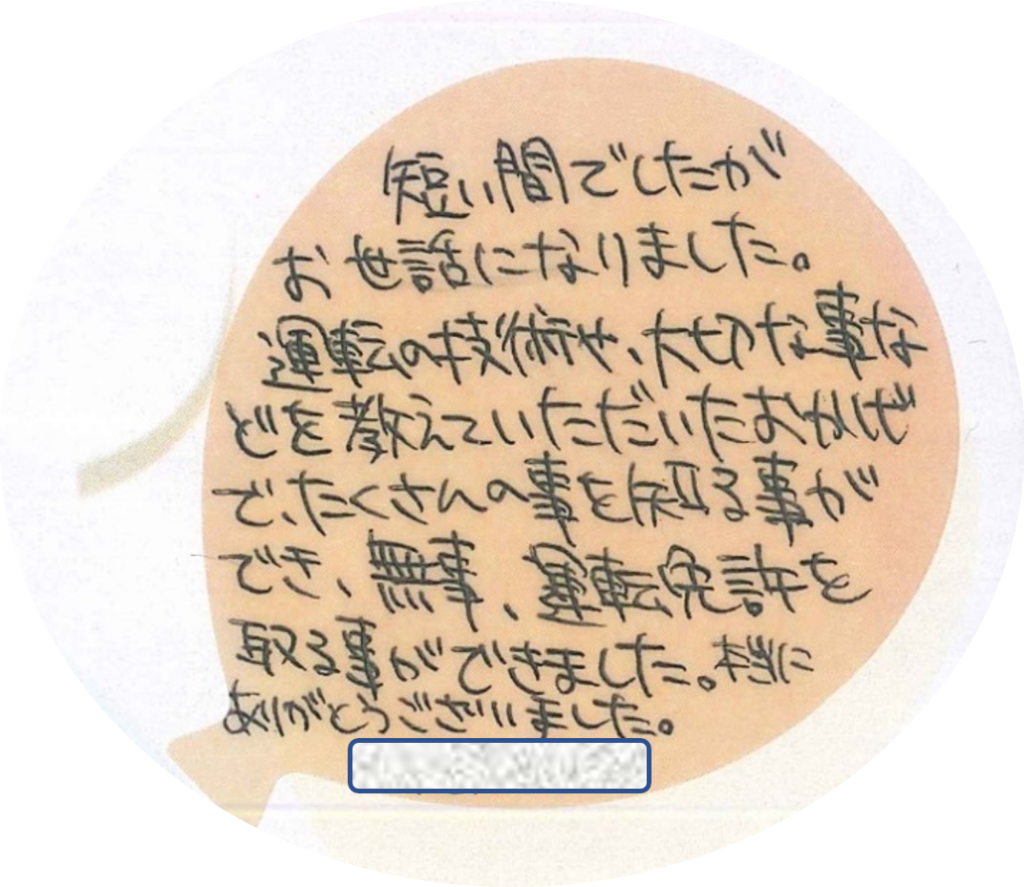 短い間でしたが
お世話になりました。
運転の技術や、大切な事な
どを教えていただいたおかげ
で、たくさんの事を知る事が
でき、無事、運転免許を
取る事ができました。本当に
ありがとうございました。